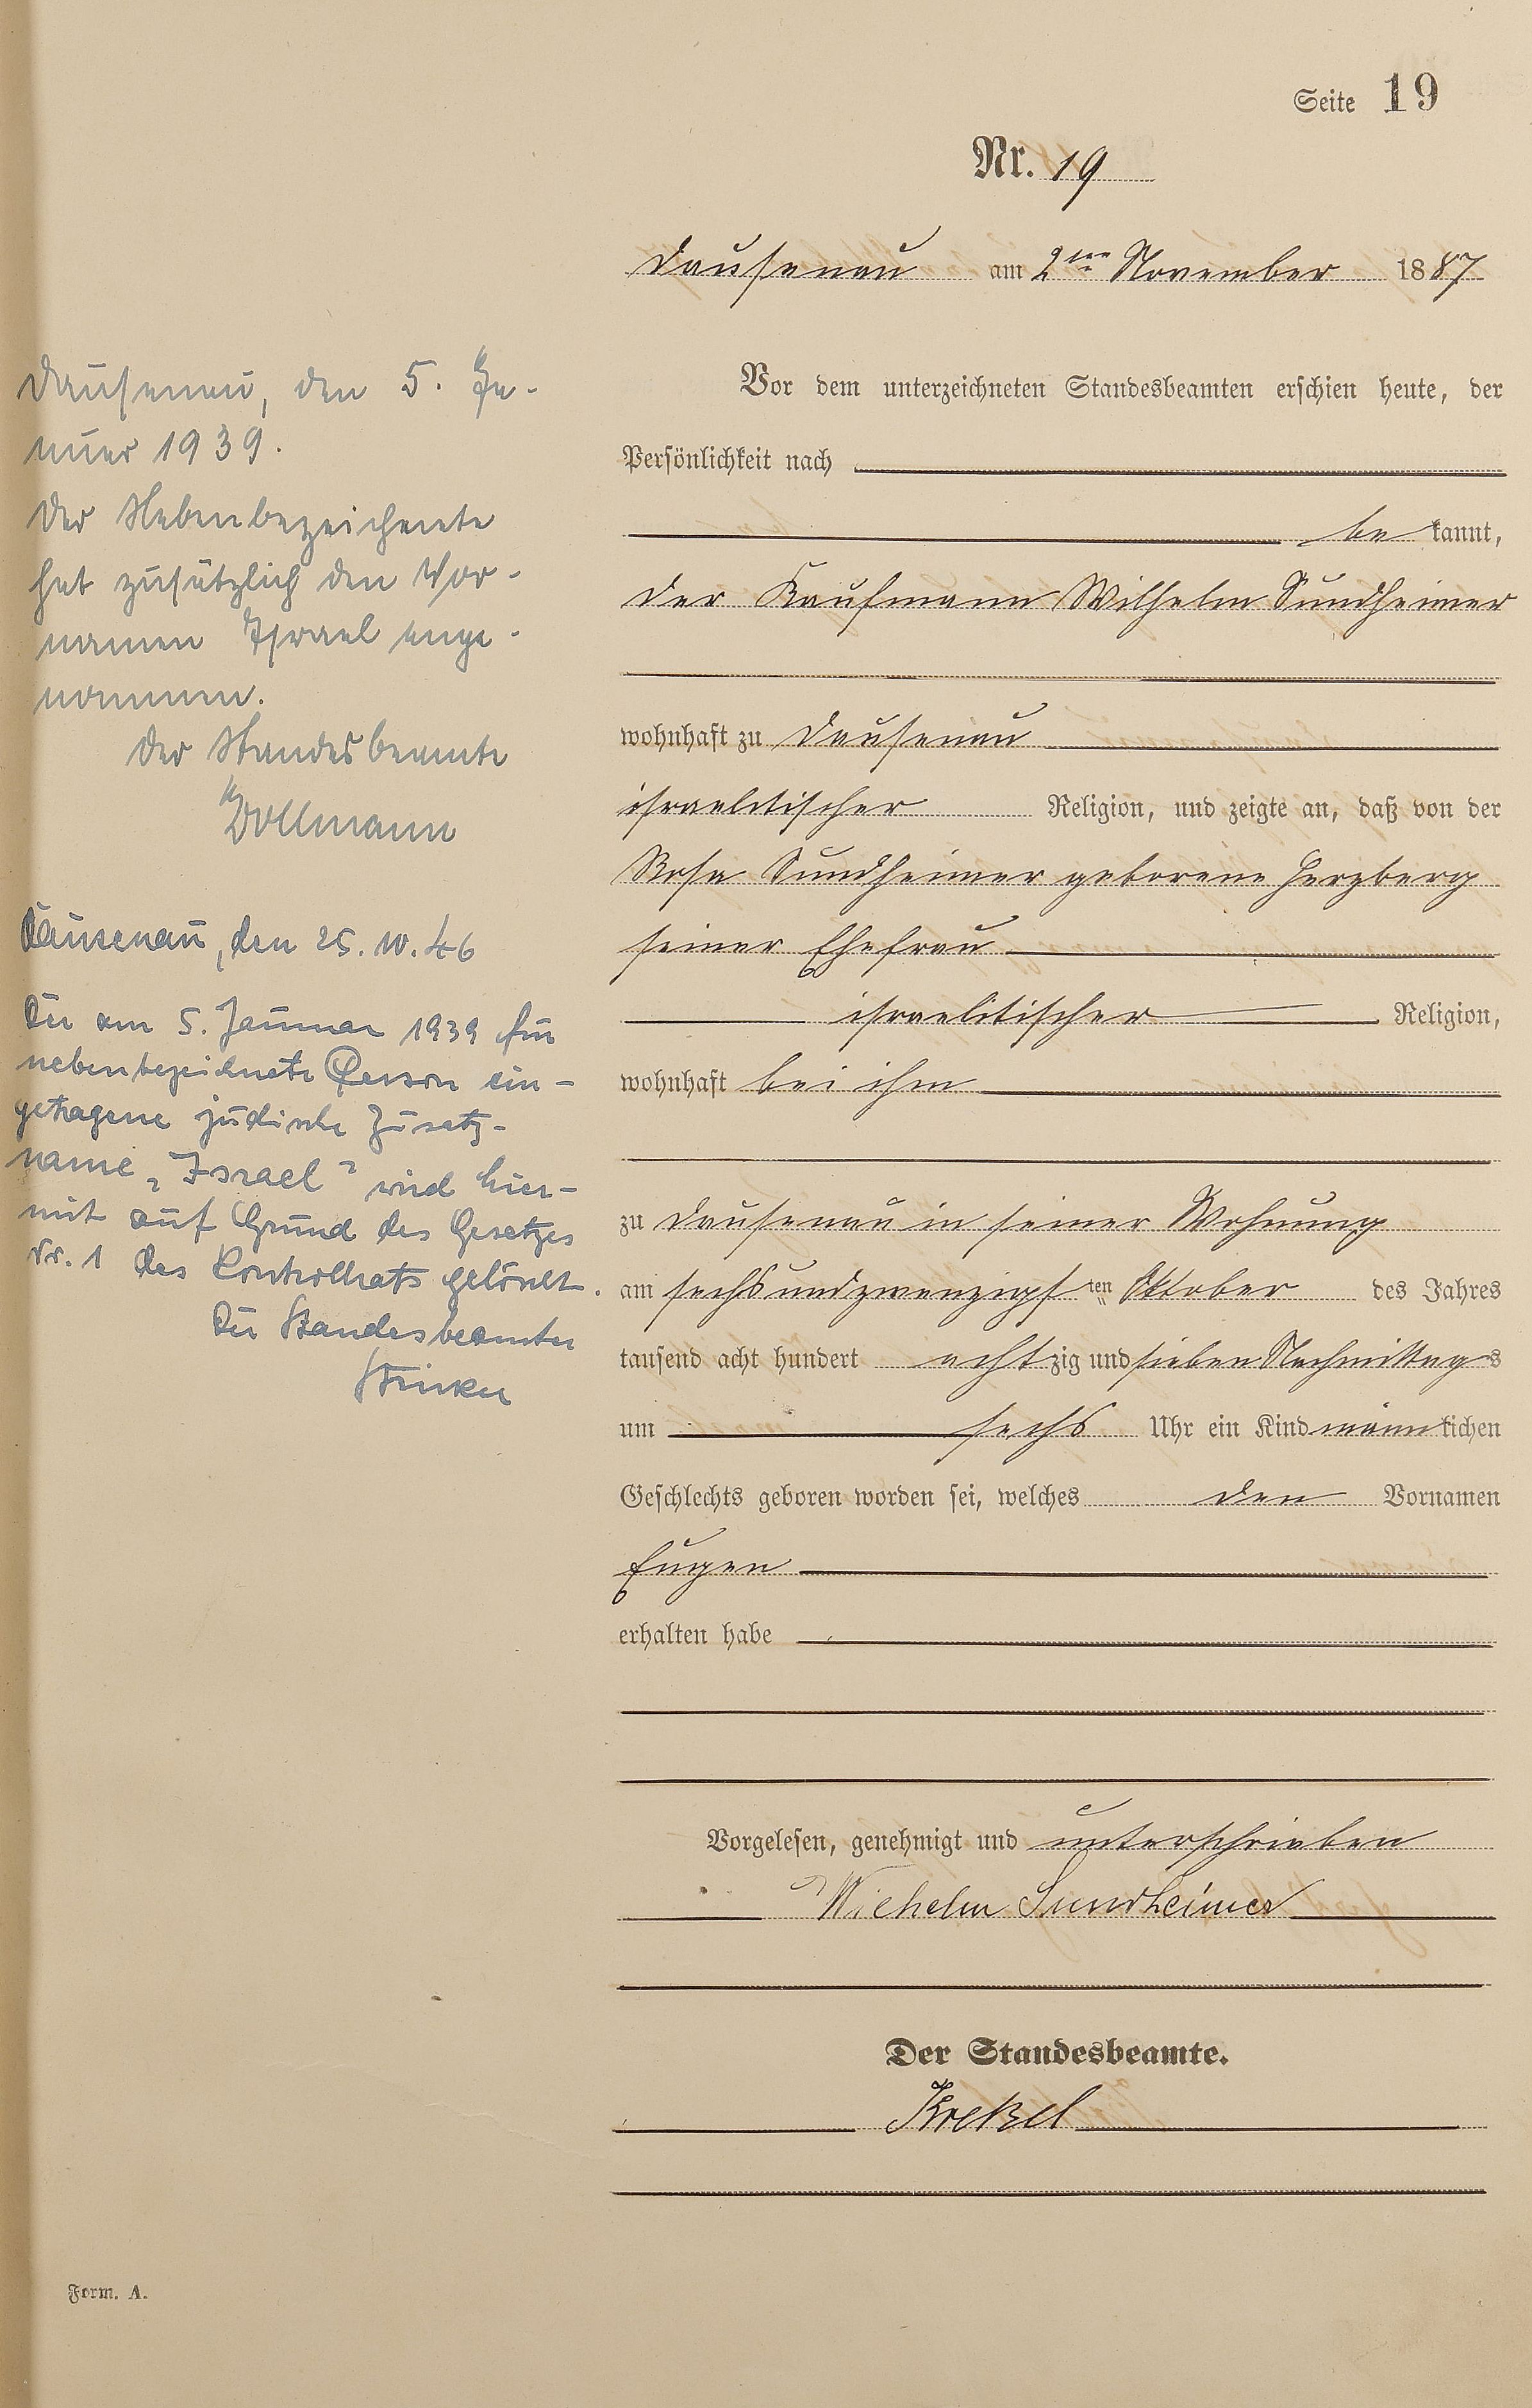 Seite 19
Nr. 19
Dausenau am 2ten November 1887
Vor dem unterzeichneten Standesbeamten erschien heute, der
Persönlichkeit nach
be kannt,
der Kaufmann Wilhelm Sundheimer
wohnhaft zu Dausenau
israelitischer Religion, und zeigte an, daß von der
Rosa Sundheimer geborene Herzberg
seiner Ehefrau
israelitischer Religion,
wohnhaft bei ihm
zu Dausenau in seiner Wohnung
am sechsundzwanzigsten Oktober des Jahres
tausend acht hundert achtzig und sieben Nachmittags
um sechs Uhr ein Kind männlichen
Geschlechts geboren worden sei, welches den Vornamen
Eugen
erhalten habe
Vorgelesen, genehmigt und unterschrieben
Wilhelm Sundheimer
Der Standesbeamte.
Krekel
Dausenau, den 5. Ja-
nuar 1939.
Der Nebenbezeichnete
hat zusätzlich den Vor-
namen Israel ange-
nommen.
Der Standesbeamte
Dollmann
Dausenau, den 25. 10. 46
Der am 5. Januar 1939 für
nebenbezeichnete Person ein-
getragene jüdische Zusatz-
name „Israel" wird hier-
mit auf Grund des Gesetzes
Nr. 1 des Kontrollrats gelöscht.
Der Standesbeamte
Form. A.